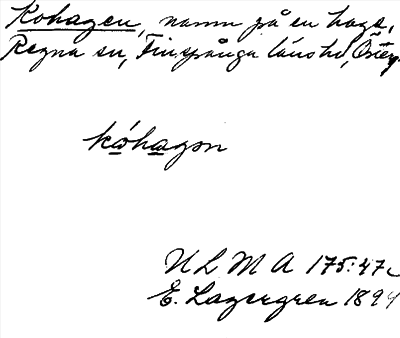 Kohagen, namn på en hage,
Regna sn, Finspånga länshd, Österg.
kóhagon
ULMA 175:47c
E. Lagergren 1894